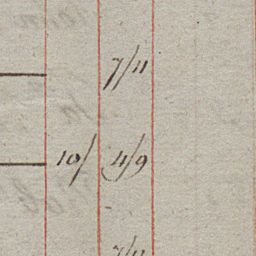 7/11
10/ 4/9
7/11